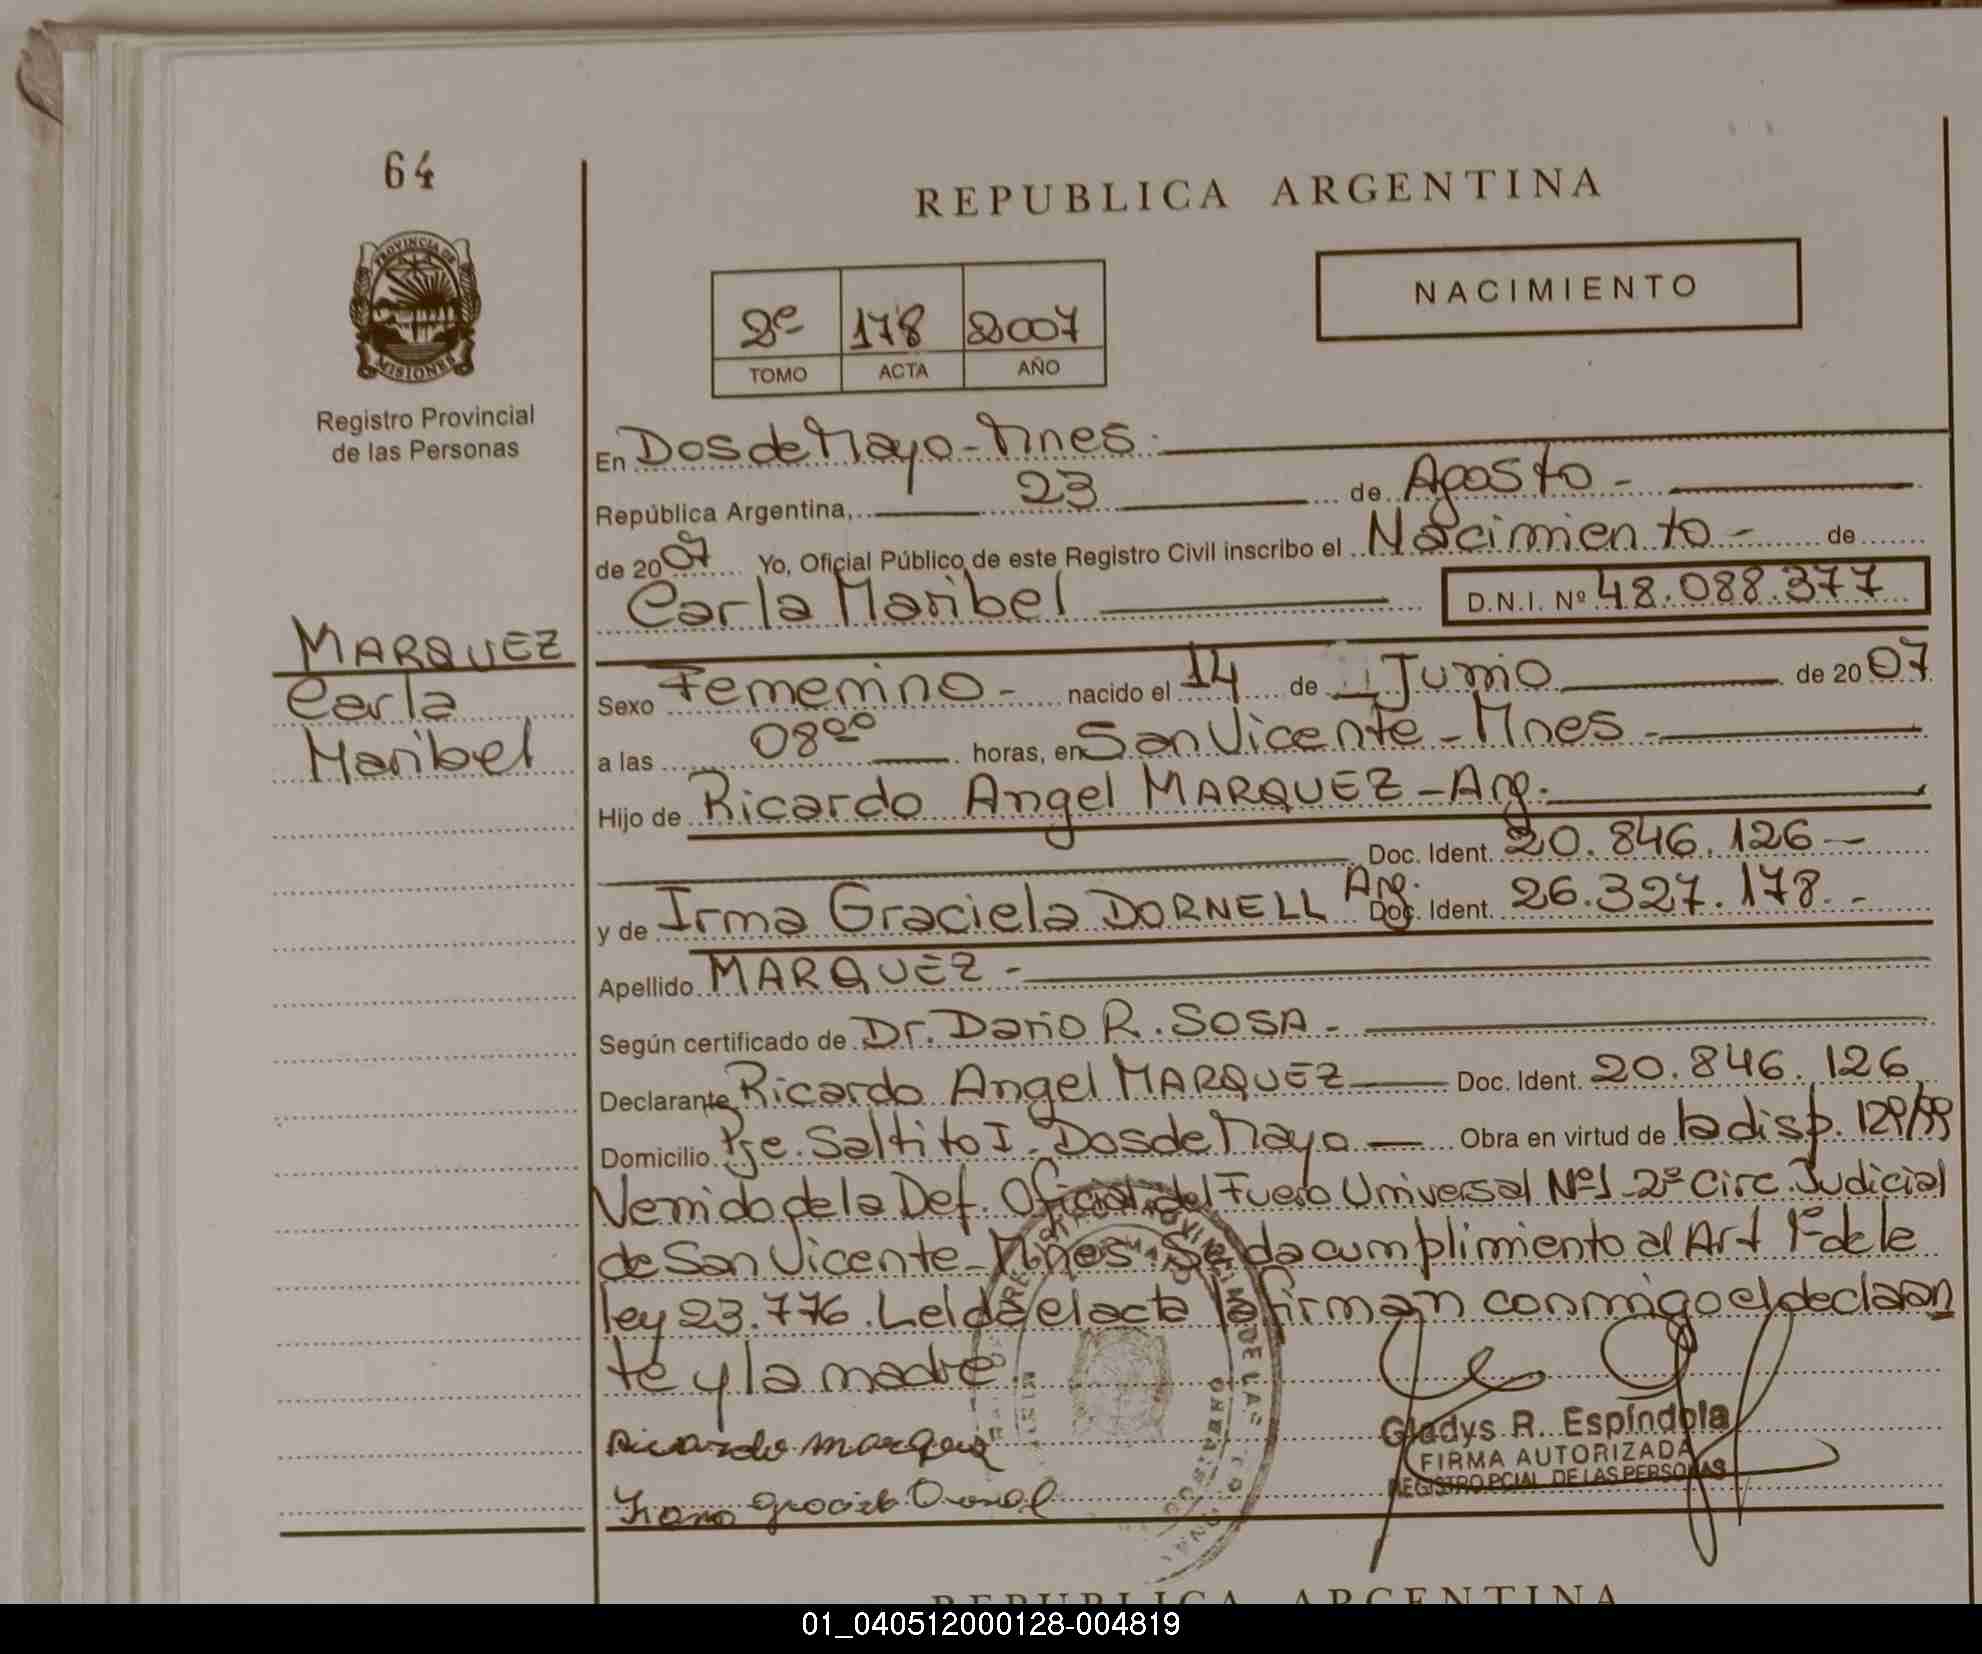 64
REPUBLICA ARGENTINA
PROVINCIA DE
MISIONES
Registro Provincial
de las Personas
NACIMIENTO
2º 178 2007
TOMO ACTA AÑO
En Dos de Mayo - Mnes.
República Argentina, 23 de Agosto -
de 2007 Yo, Oficial Público de este Registro Civil inscribo el Nacimiento - de
Carla Maribel D.N.I. Nº 48.088.377
MARQUEZ
Carla
Maribel
Sexo Femenino - nacido el 14 de Junio de 2007
a las 08ºº horas, en San Vicente - Mnes -
Hijo de Ricardo Angel MARQUEZ - Arg.
Doc. Ident. 20.846.126 -
y de Irma Graciela DORNELL Arg. Doc. Ident. 26.327.178. -
Apellido MARQUEZ -
Según certificado de Dr. Dario R. SOSA -
Declarante Ricardo Angel MARQUEZ Doc. Ident. 20.846.126
Domicilio Pje. Saltito I - Dos de Mayo - Obra en virtud de la disp. 129/99
Venido de la Def. Oficial del Fuero Universal Nº1 - 2º Circ. Judicial
de San Vicente - Mnes. Se da cumplimiento al Art 1º de la
ley 23.776. Leida el acta la firman conmigo el declaran
te y la madre
Ricardo Marquez
Irma Graciela
Gladys R. Espíndola
FIRMA AUTORIZADA
REGISTRO PCIAL. DE LAS PERSONAS
REPUBLICA ARGENTINA
01_040512000128-004819